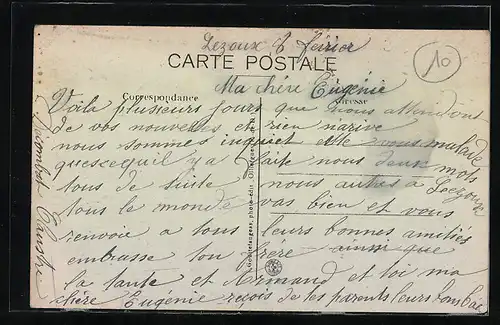 Lezoux 8 février
CARTE POSTALE
10
Ma chére Eugénie
Correspondance
Adresse
Voila plusieurs jours que nous attendons
de vos nouvelles et rien narive
nous sommes inquiet ete vous malade
quescequil y a faite nous deux mots
tous de suiste nous autres a Lezoux
tous le monde vas bien et vous
renvoie a tous leurs bonnes amitiés
embrasse ton frére ainsi que
la tante et Armand et toi ma
chére Eugénie reçois de tes parents leurs bons bai